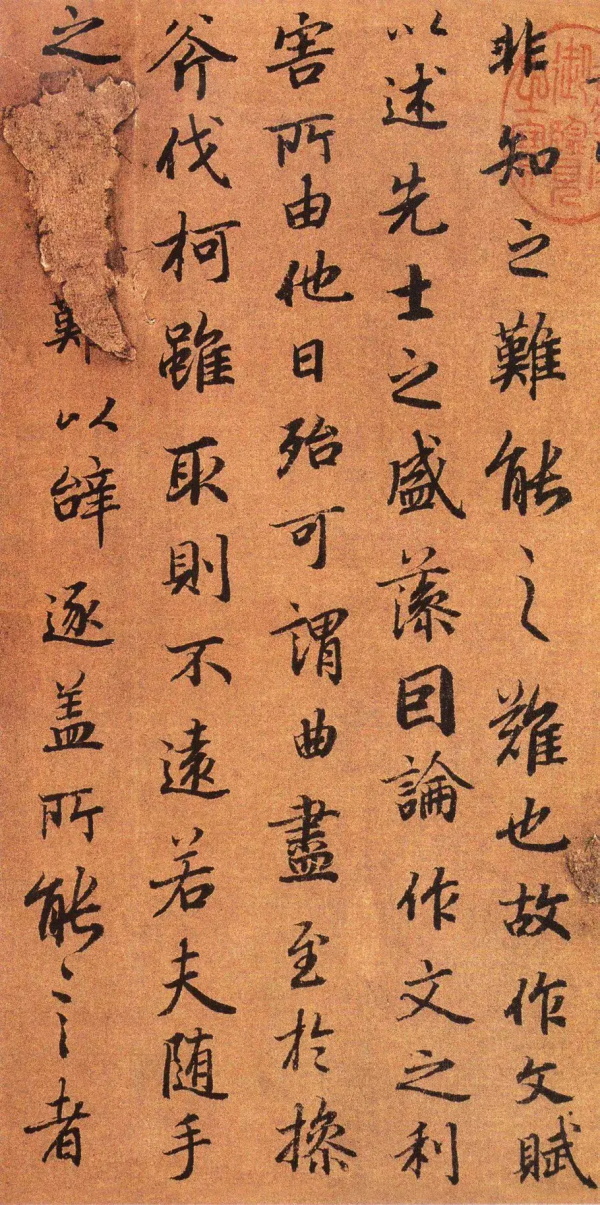 非知之難能之難也故作文賦
以述先士之盛藻囙論作文之利
害所由他日殆可謂曲盡至於操
斧伐柯雖取則不遠若夫随手
之難以辤逐盖所能言者